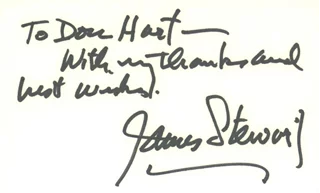 To Don Hart —
With my thanks and
best wishes.
James Stewart